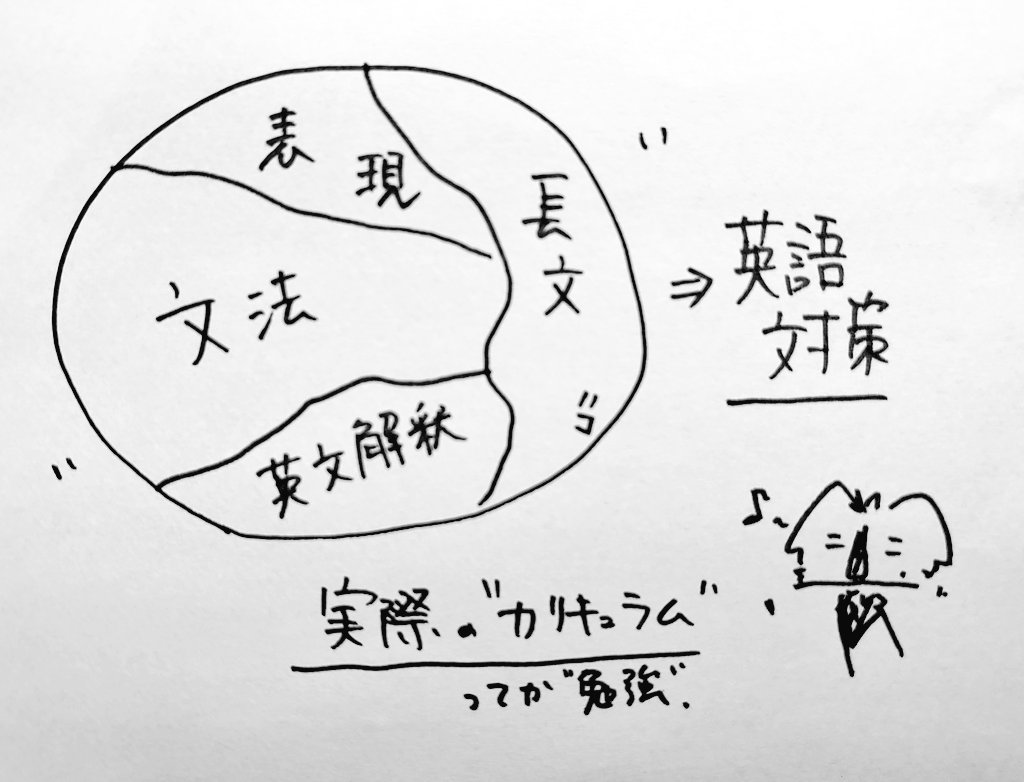 表現
長文
文法
英文解釈
⇒ 英語
対策
実際の"カリキュラム"
ってか"勉強".